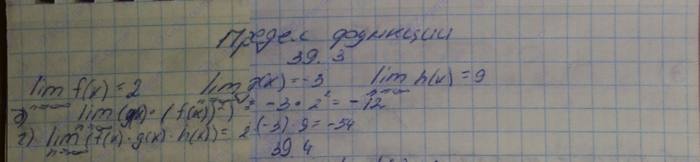 Предел функции
39.3
lim f(x) = 2 lim g(x) = -3 lim h(x) = 9
n→∞ n→∞ n→∞
в) lim (g(x) · (f(x))²) = -3 · 2² = -12
n→∞
г) lim (f(x) · g(x) · h(x)) = 2 (-3) 9 = -54
n→∞
39.4